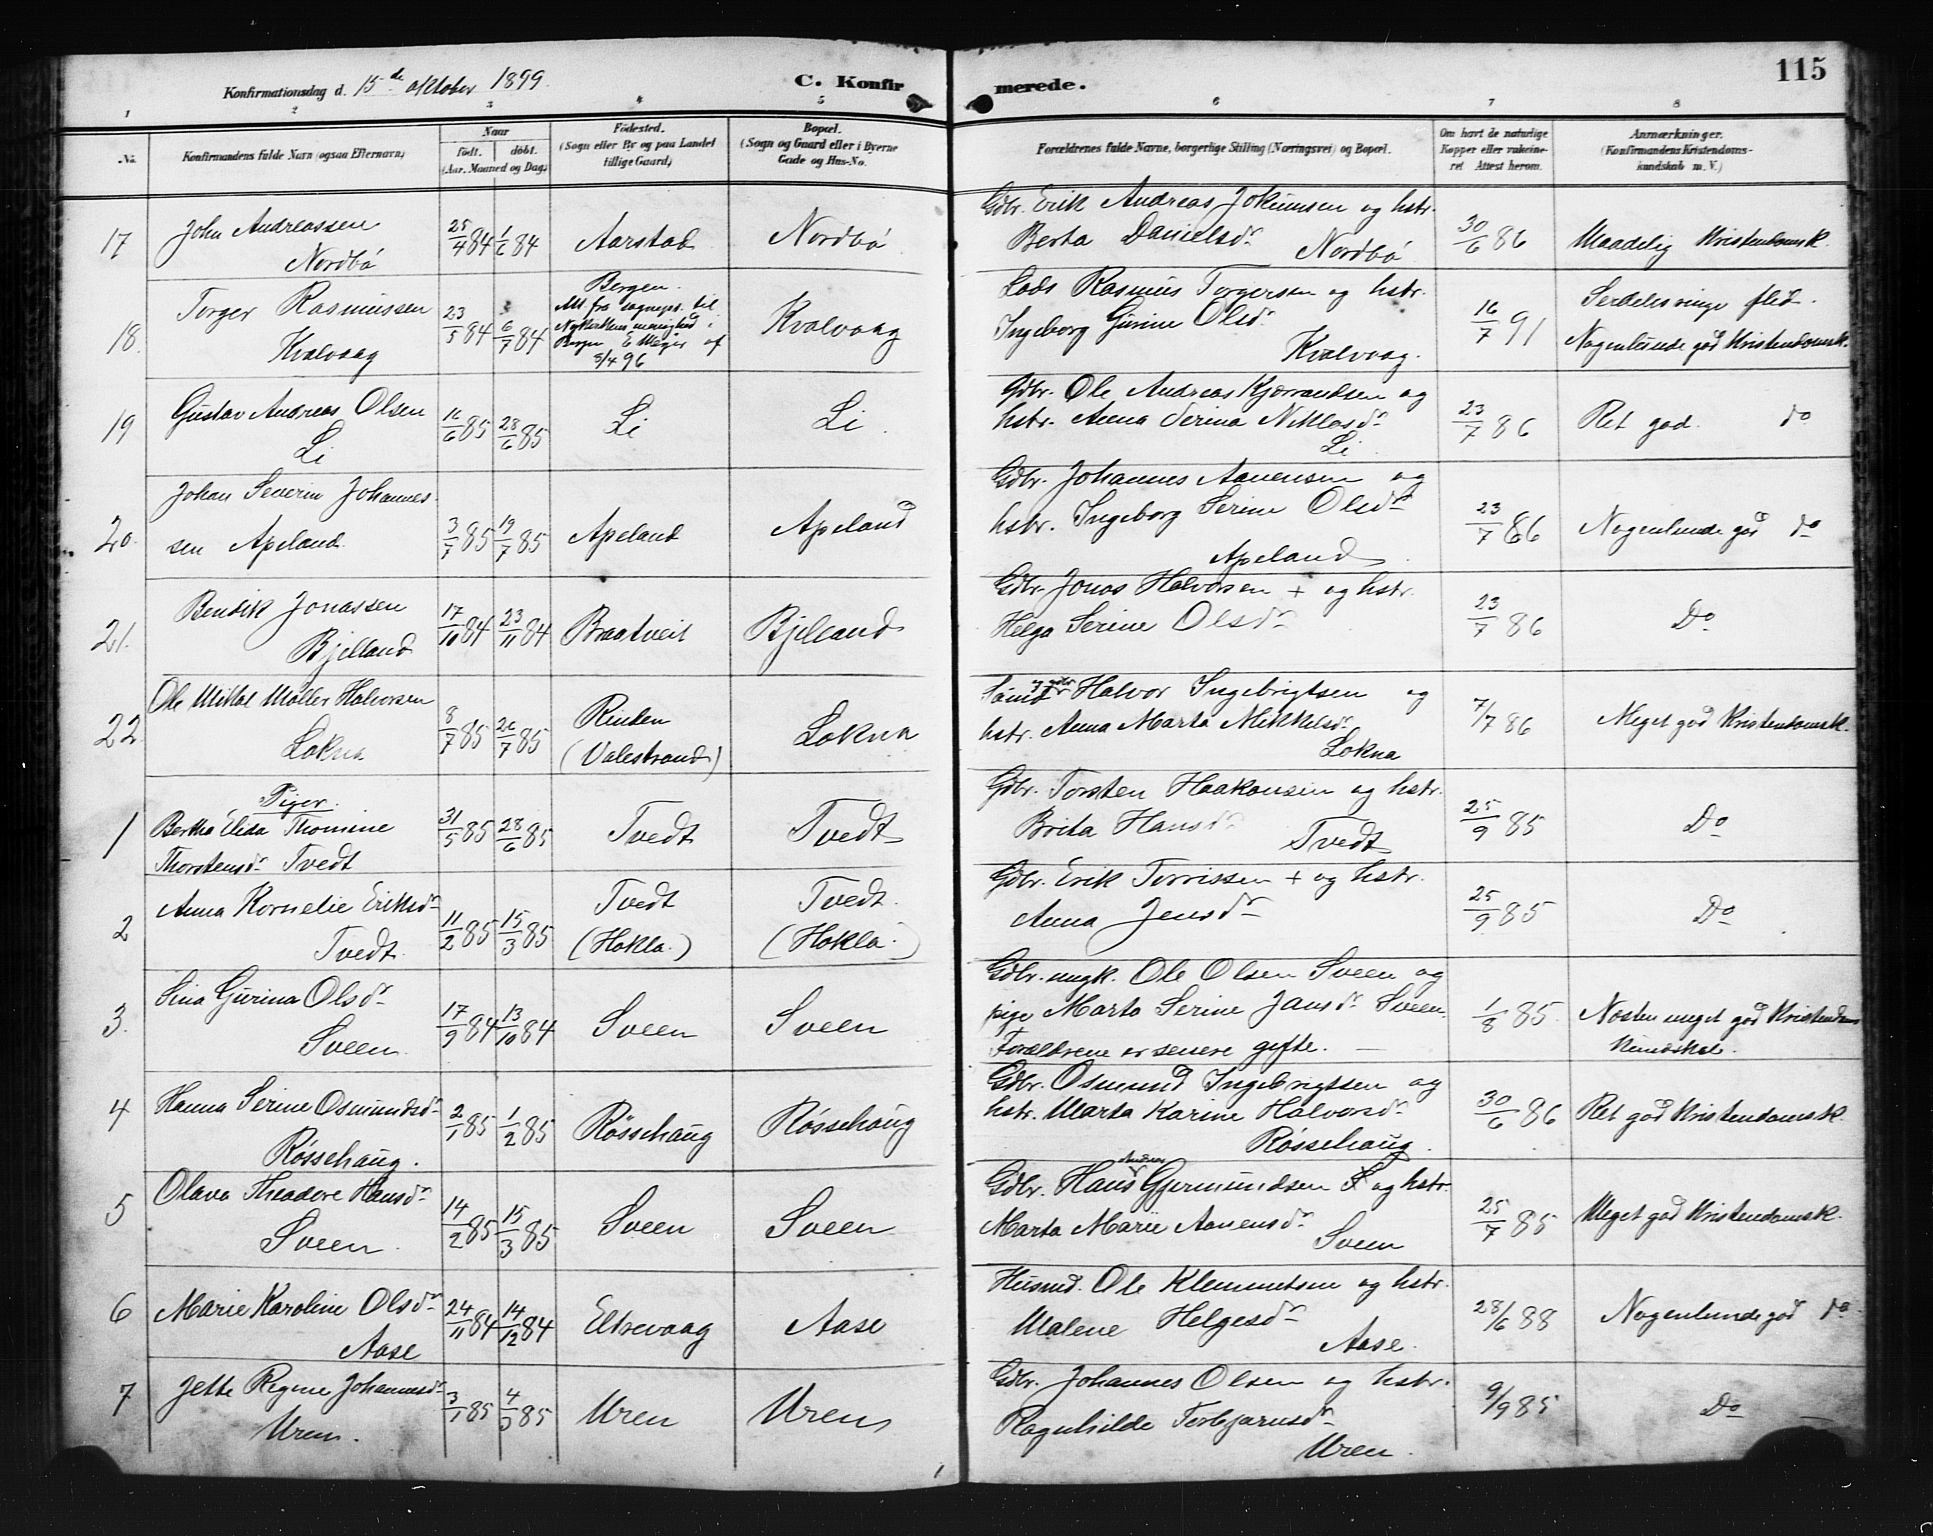 115
Konfirmationsdag d. 15de oktober 1899.
C. Konfirmerede.
1 2 3 4 5 6 7 8
No.
Konfirmandens fulde Navn (ogsaa Efternavn)
Naar
født. døbt.
(Aar, Maaned og Dag)
Fødested.
(Sogn eller By og paa Landet
tillige Gaard)
Bopæl.
(Sogn og Gaard eller i Byerne
Gade og Hus-No.
Forældrenes fulde Navne, borgerlige Stilling (Næringsvei) og Bopæl.
Om havt de naturlige
Kopper eller vaccine-
ret Attest herom.
Anmærkninger.
(Konfirmandens Kristendoms-
kundskab m. V.)
17 John Andreassen Nordbø 25/4 84 1/6 84 Aarstad Nordbø
Gdbr. Erik Andreas Jokumsen og hstr.
Berta Danielsdr Nordbø
30/6 86 Maadelig Kristendomsk.
18. Torger Rasmussen Kvalvaag 23/5 84 6/7 84
Bergen.
Att. fra sogneps. til
Nykirkens menighed i
Bergen af
5/4 96
Kvalvaag
Lods Rasmus Torgersen og hstr.
Ingeborg Gurine Olsdr
Kvalvaag.
16/7 91
Serdeles ringe flid.
Nogenlunde god Kristendomsk.
19 Gustav Andreas Olsen Li 16/6 85 28/6 85 Li Li
Gdbr. Ole Andreas Kjørrandsen og
hstr. Anna Serina Niklasdr
Li
23/7 86 Ret god. do
20. Johan Severin Johannes-
sen Apeland 3/7 85 19/7 85 Apeland Apeland
Gdbr. Johannes Aanensen og
hstr. Ingeborg Serine Olsdr
Apeland
23/7 86 Nogenlunde god do
21. Bendik Jonassen Bjelland 17/10 84 23/11 84 Braatveit Bjelland
Gdbr. Jonas Halvorsen + og hstr.
Helga Serine Olsdr
23/7 86 Do
22 Ole Mikal Møller Halvorsen Lokna 8/7 85 26/7 85 Rinden
(Valestrand) Lokna
og gdbr Halvor Ingebrigtsen og
hstr. Anna Marta Mikkelsdr
Lokna
7/7 86 Meget god Kristendomsk.
Piger.
1 Bertha Elida Thomine
Thorstensdr Tvedt 31/5 85 28/6 85 Tvedt Tvedt
Gdbr. Torsten Haakonsen og hstr.
Brita Hansdr Tvedt
25/9 85 Do
2 Anna Kornelie Eriksdr Tvedt. 11/2 85 15/3 85 Tvedt
(Hokla.) Tvedt.
(Hokla.)
Gdbr. Erik Torrissen + og hstr.
Anna Jensdr
25/9 85 Do
3. Sina Gurina Olsdr Sveen. 17/9 84 13/10 84 Sveen Sveen
Gdbr. ungk. Ole Olsen Sveen og
pige Marta Serine Jansdr Sveen.
Forældrene er senere gifte. —
1/8 85. Næsten meget god Kristendoms
kundskab.
4 Hanna Serine Osmundsdr Røssehaug. 2/1 85 1/2 85 Røssehaug Røssehaug
Gdbr. Osmund Ingebrigtsen og
hstr. Marta Karine Halvorsdr
Røssehaug
30/6 86 Ret god Kristendomsk.
5 Olava Theadore Hansdr Sveen. 14/2 85 15/3 85 Sveen Sveen
Gdbr. Hans Andreas Gjermundsen og hstr.
Marta Marie Aanensdr
Sveen
25/7 85 Meget god Kristendomsk.
6 Marie Karoline Olsdr Aase 24/11 84 14/12 84 Eltrevaag Aase
Husmd. Ole Klemmetsen og hstr.
Malene Helgesdr
Aase.
28/6 88 Nogenlunde god do
7 Jette Regine Johannesdr Uren. 3/1 85 4/3 85 Uren Uren
Gdbr. Johannes Olsen og hstr.
Ragnhilde Torbjørnsdr
Uren.
9/9 85 Do